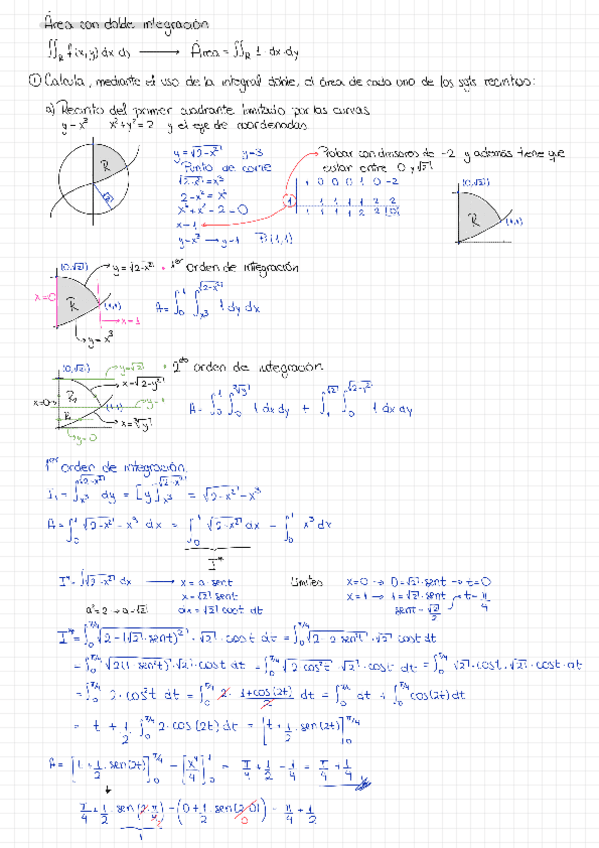 Área con doble integración
∬_R f(x,y) dx dy ⟶ Área = ∬_R 1 · dx dy
① Calcula, mediante el uso de la integral doble, el área de cada uno de los sgts recintos:
a) Recinto del primer cuadrante limitado por las curvas
y = x³ x² + y² = 2 y el eje de coordenadas
R
√2
y = √(2-x²) y = 3
Punto de corte
√(2-x²) = x³
2 - x² = x⁶
x⁶ + x² - 2 = 0
x = 1
y = x³ → y = 1 B(1,1)
Probar con divisores de -2 y además tiene que
estar entre 0 y √2
1 0 0 0 1 0 -2
1 1 1 1 1 2 2
1 1 1 1 2 2 |0|
(0,√2)
R
(1,1)
(0,√2) y = √(2-x²) · 1er orden de integración
x=0 R (1,1) A = ∫₀¹ ∫_{x³}^{√(2-x²)} 1 dy dx
x=1
y = x³
(0,√2) y=√2 · 2do orden de integración
x=√(2-y²)
x=0 (1,1) y=1 A = ∫₀¹ ∫₀^{∛y} 1 dx dy + ∫₁^{√2} ∫₀^{√(2-y²)} 1 dx dy
x = ∛y
y=0
1er orden de integración
I₁ = ∫_{x³}^{√(2-x²)} dy = [y]_{x³}^{√(2-x²)} = √(2-x²) - x³
A = ∫₀¹ √(2-x²) - x³ dx = ∫₀¹ √(2-x²) dx - ∫₀¹ x³ dx
I*
I* = ∫√(2-x²) dx ⟶ x = a · sent Límites x=0 → 0=√2 · sent → t=0
x = √2 sent x=1 → 1=√2 · sent t=π/4
a²=2 → a=√2 dx = √2 cost dt sent = √2/2
I* = ∫₀^{π/4} √(2-(√2 · sent)²) · √2 · cost dt = ∫₀^{π/4} √(2-2 sen²t) · √2 cost dt
= ∫₀^{π/4} √(2(1-sen²t)) · √2 · cost dt = ∫₀^{π/4} √(2 cos²t) · √2 · cost dt = ∫₀^{π/4} √2 · cost · √2 · cost · dt
= ∫₀^{π/4} 2 · cos²t dt = ∫₀^{π/4} 2 · (1+cos(2t))/2 dt = ∫₀^{π/4} dt + ∫₀^{π/4} cos(2t) dt
= t + 1/2 · ∫₀^{π/4} 2 · cos(2t) dt = [t + 1/2 · sen(2t)]₀^{π/4}
A = [t + 1/2 · sen(2t)]₀^{π/4} - [x⁴/4]₀¹ = π/4 + 1/2 - 1/4 = π/4 + 1/4
π/4 + 1/2 · sen(2 · π/4) - (0 + 1/2 · sen(2·0)) = π/4 + 1/2
1 0